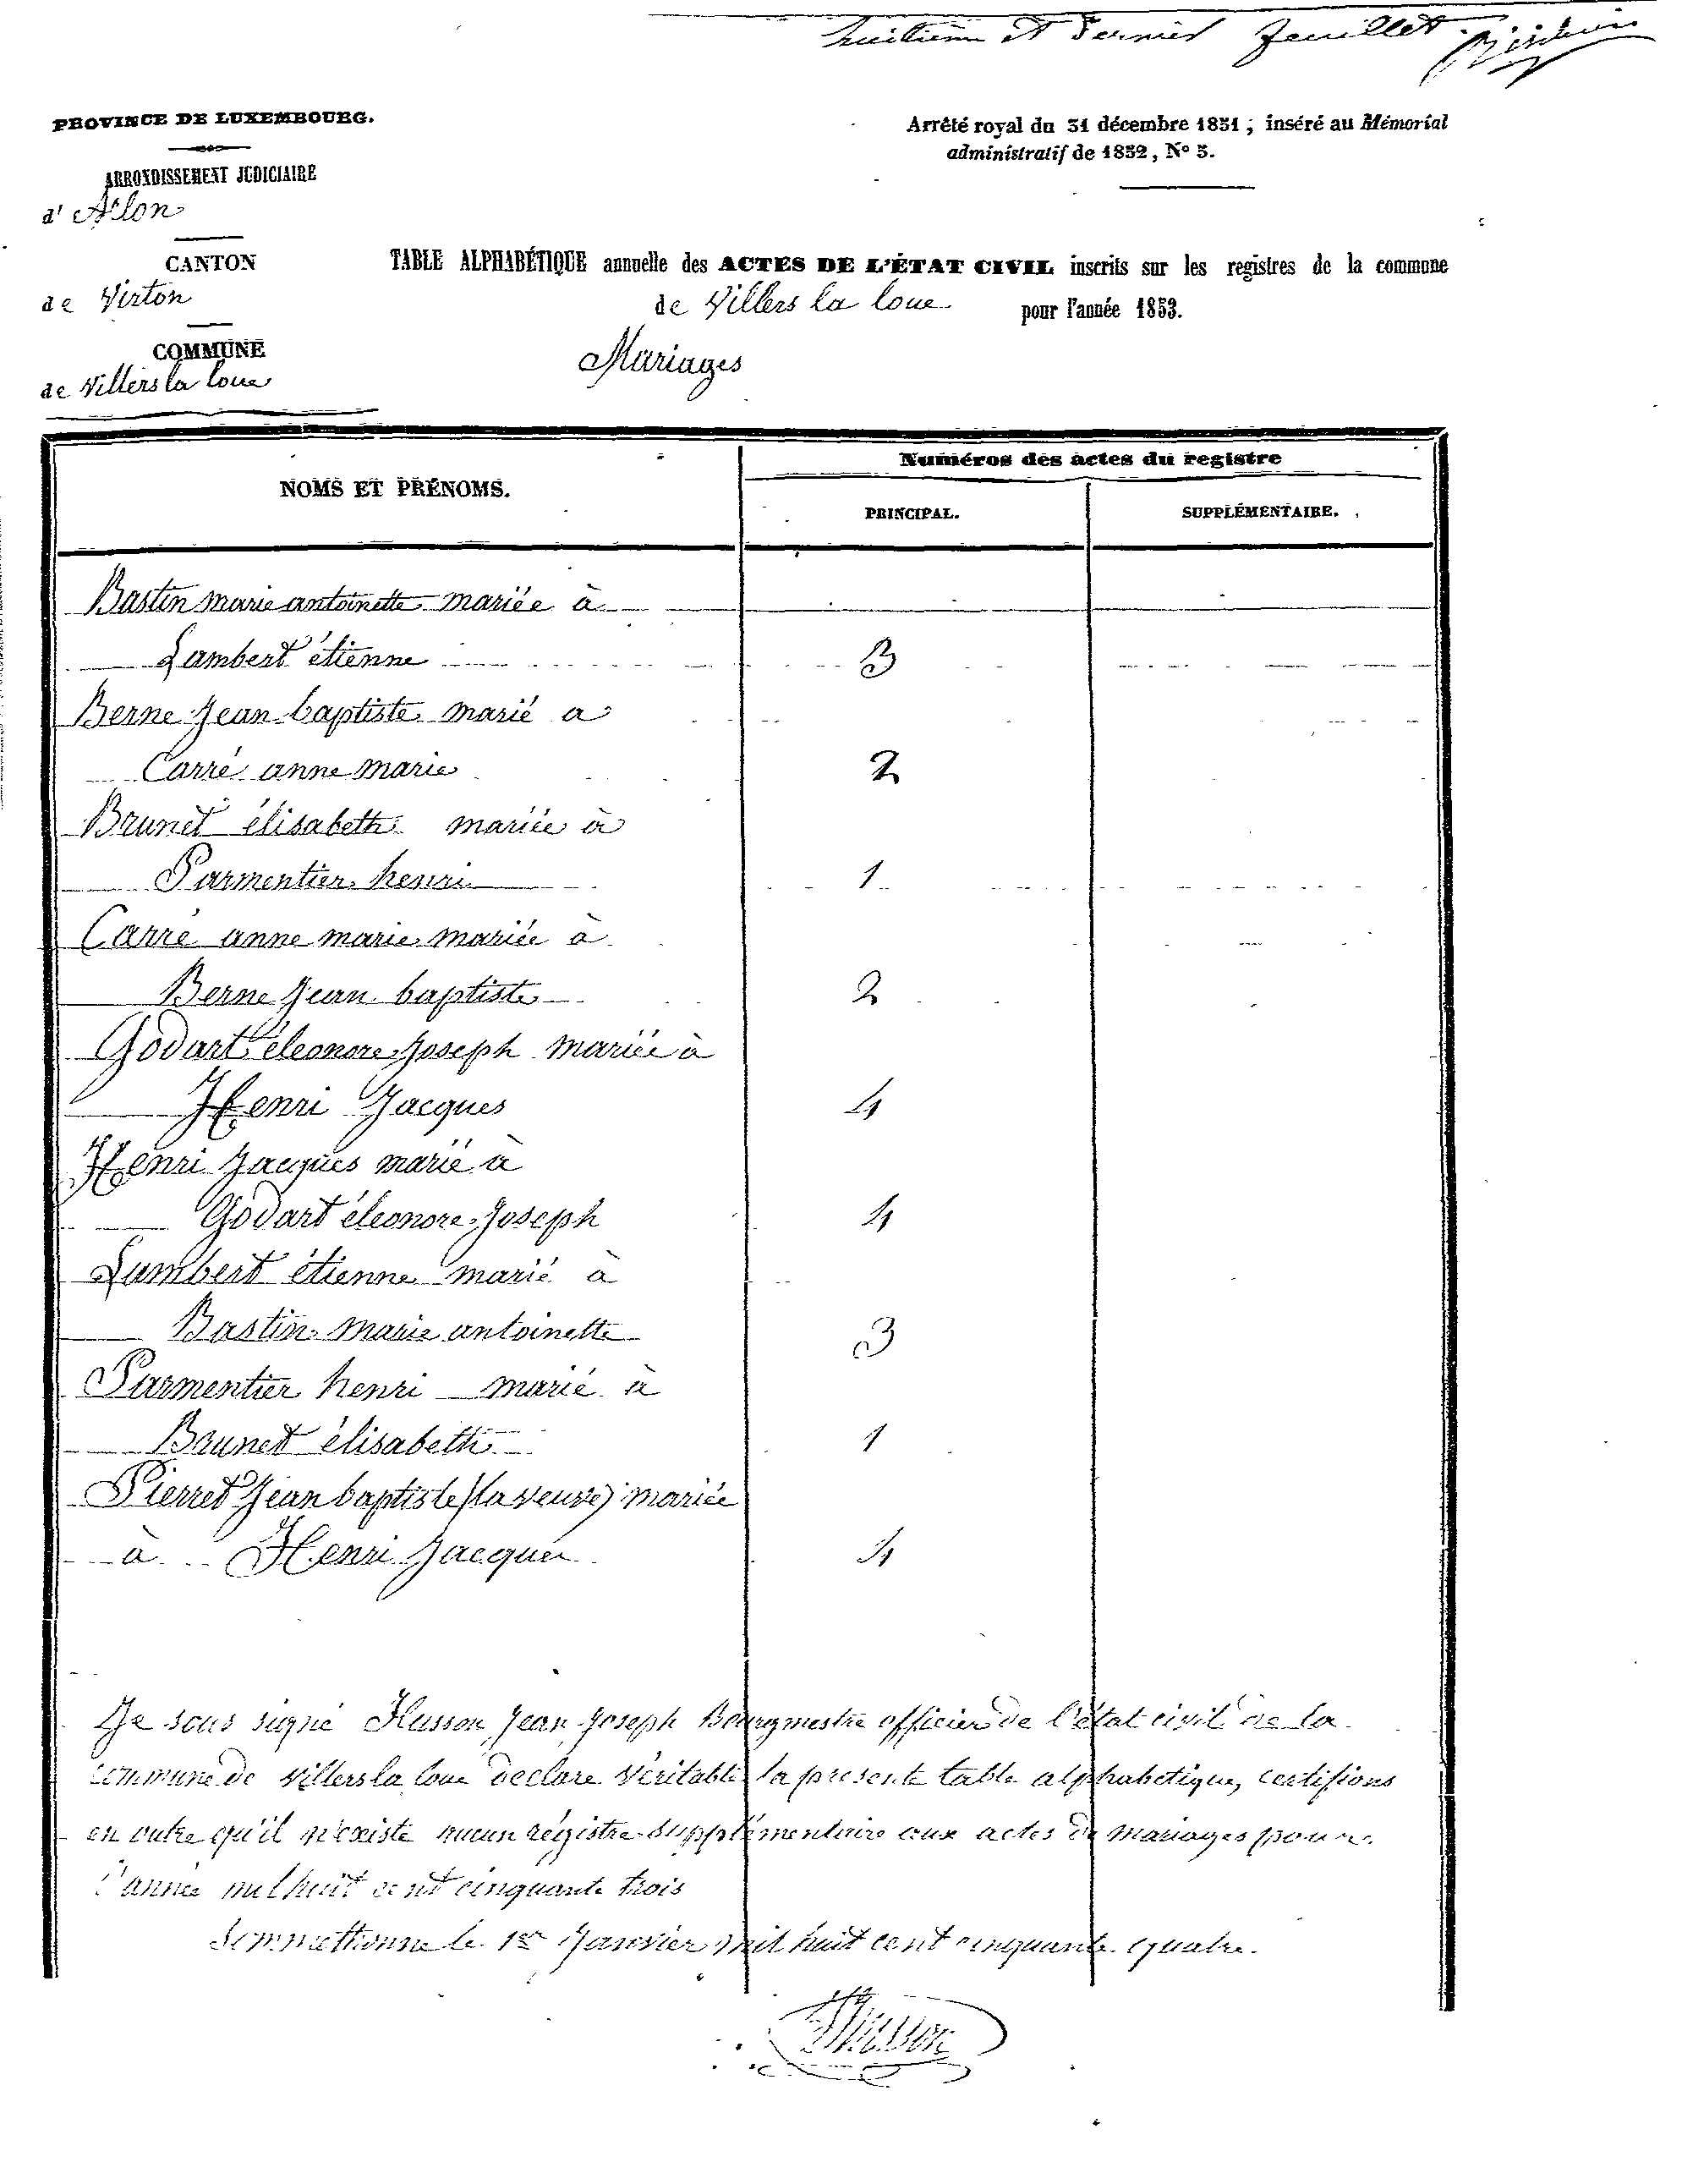 huitième et dernier feuillet.
PROVINCE DE LUXEMBOURG.
ARRONDISSEMENT JUDICIAIRE
d' Arlon
CANTON
de Virton
COMMUNE
de Villers la loue
Arrêté royal du 31 décembre 1831 ; inséré au Mémorial
administratif de 1832, No 3.
TABLE ALPHABÉTIQUE annuelle des ACTES DE L'ÉTAT CIVIL inscrits sur les registres de la commune
de Villers la loue pour l'année 1853.
Mariages
NOMS ET PRÉNOMS.
Numéros des actes du registre
PRINCIPAL.
SUPPLÉMENTAIRE.
Bastin marie antoinette mariée à
Lambert étienne 3
Berne Jean baptiste marié a
Carré anne marie 2
Brunet élisabeth mariée à
Parmentier henri 1
Carré anne marie mariée à
Berne Jean baptiste 2
Godart éleonore Joseph mariée à
Henri Jacques 4
Henri Jacques marié à
Godart éleonore Joseph 4
Lambert étienne marié à
Bastin marie antoinette 3
Parmentier henri marié à
Brunet élisabeth 1
Pierret Jean baptiste (la veuve) mariée
à Henri Jacques 4
Je sous signé Husson Jean Joseph Bourgmestre officier de l'état civil de la
commune de Villers la loue declare véritable la presente table alphabetique, certifions
en outre qu'il n'existe aucun régistre supplémentaire aux actes de mariages pour
l'année mil huit cent cinquante trois
le 1er Janvier mil huit cent cinquante quatre.
Husson